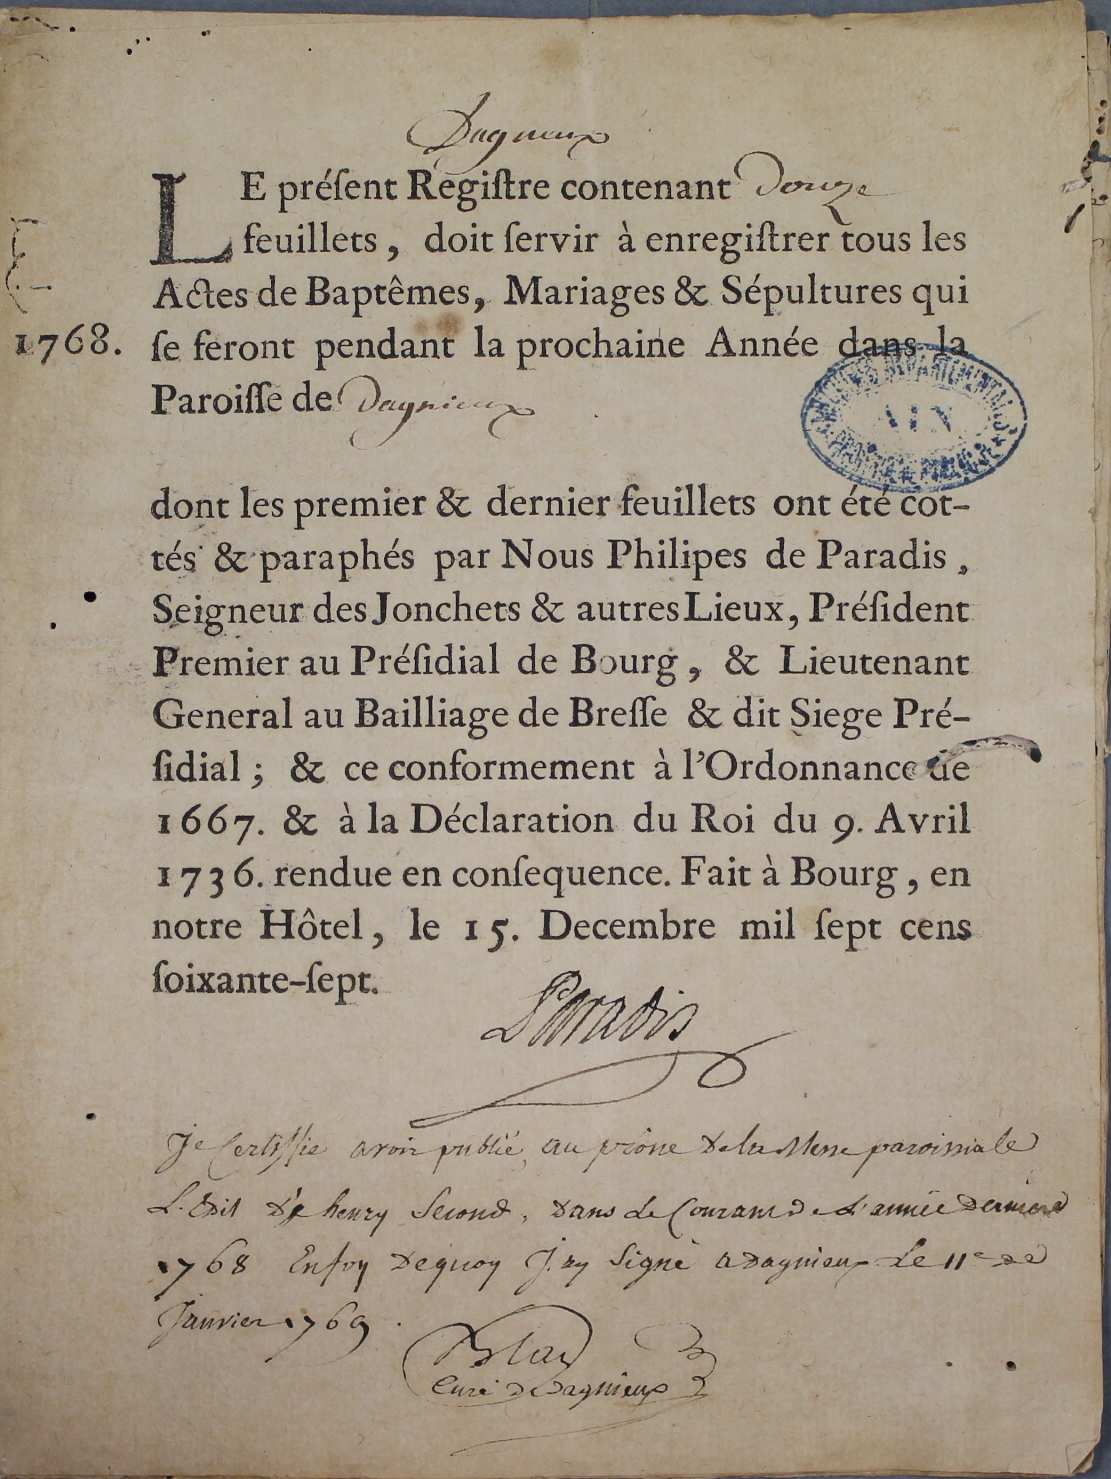 Dagneux
LE préſent Regiſtre contenant Douze
feuillets, doit ſervir à enregiſtrer tous les
Actes de Baptêmes, Mariages & Sépultures qui
1768. ſe feront pendant la prochaine Année dans la
Paroiſſe de Dagnieux
ARCHIVES DÉPARTEMENTALES
AIN
dont les premier & dernier feuillets ont été cot-
tés & paraphés par Nous Philipes de Paradis,
Seigneur des Jonchets & autres Lieux, Préſident
Premier au Préſidial de Bourg, & Lieutenant
General au Bailliage de Breſſe & dit Siege Pré-
ſidial; & ce conformement à l'Ordonnance de
1667. & à la Déclaration du Roi du 9. Avril
1736. rendue en conſequence. Fait à Bourg, en
notre Hôtel, le 15. Decembre mil ſept cens
ſoixante-ſept.
Paradis
Je Certiffie avoir publié au prône De la Messe paroissiale
L'Edit De henry Second, Dans Le Courant De L'année Derniere
1768 En foy De quoy J'ay Signé a Dagnieux Le 11e De
Janvier 1769.
Curé De Dagnieux